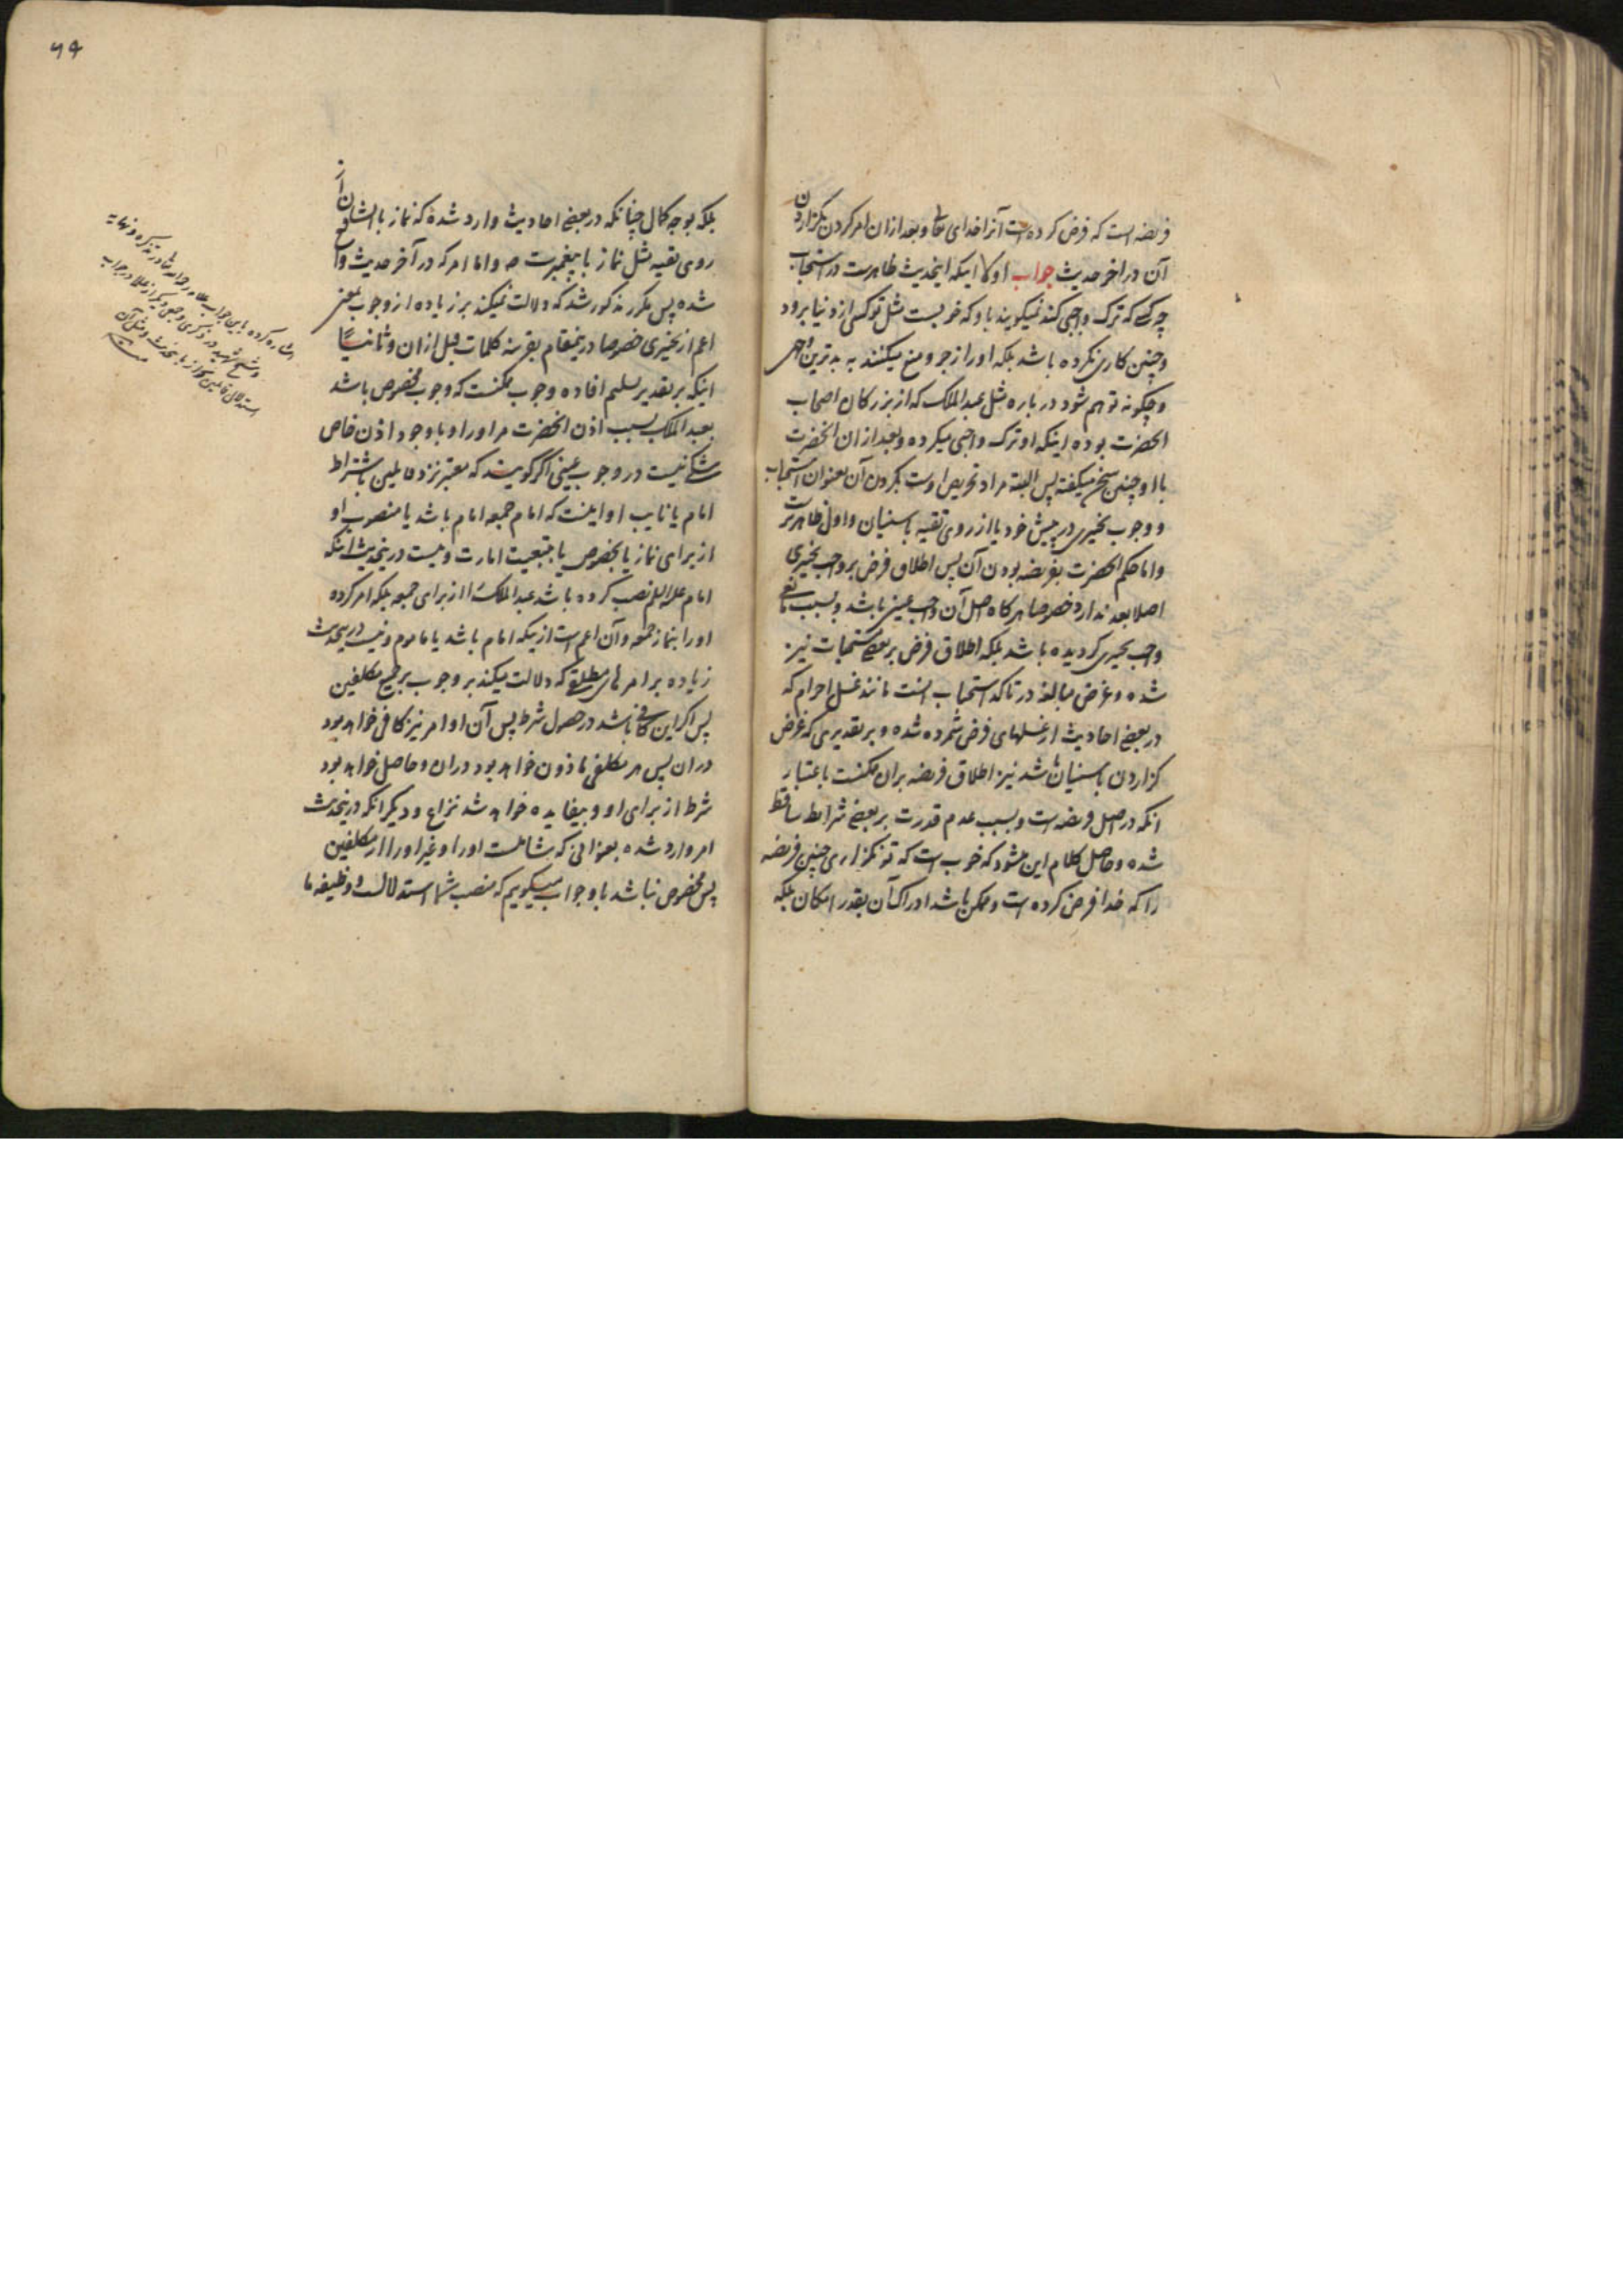 فریضه است که فرض کرده است آنرا خدای تعالی و بعد ازان امر کردن بگزاردن
آن در اخر حدیث جواب اولا اینکه اینحدیث ظاهرست در استحباب
چه کسی که ترک واجبی کند نمیکویند باو که خوب نیست مثل تو کسی از دنیا برود
و چنین کاری نکرده باشد بلکه او را زجر و منع میکنند به بدترین وجهی
و چکونه توهم شود در باره مثل عبد الملک که از بزرکان اصحاب
انحضرت بوده اینکه او ترک واجبی میکرده و بعد ازان انحضرت
با او چنین سخن میکفته پس البته مراد تحریص اوست بکردن آن بعنوان استحباب
و وجوب تخییری در پیش خود یا از روی تقیه با سنیان و اول ظاهرترست
و اما حکم انحضرت بفریضه بودن آن پس اطلاق فرض بر واجب تخییری
اصلا بعد ندارد خصوصا هرکاه اصل آن واجب عینی باشد و بسبب مانعی
واجب تخییری کردیده باشد بلکه اطلاق فرض بر بعضی مستحبات نیز
شده و غرض مبالغه در تاکد استحباب انست مانند غسل احرام که
در بعضی احادیث از غسلهای فرض شمرده شده و بر تقدیری که غرض
کزاردن با سنیان باشد نیز اطلاق فریضه بران ممکنست باعتبار
انکه در اصل فریضه است و بسبب عدم قدرت بر بعضی شرایط ساقط
شده و حاصل کلام این میشود که خوب است که تو نکزاری چنین فریضه
را که خدا فرض کرده است و ممکن باشد ادراک آن بقدر امکان بلکه
بلکه بوجه کمال چنانکه در بعضی احادیث وارد شده که نماز با ایشان از
روی تقیه مثل نماز با پیغمبرست ص و اما امر که در آخر حدیث واقع
شده پس مکرر مذکور شد که دلالت نمیکند بر زیاده از وجوب بمعنی
اعم از تخییری خصوصا درینمقام بقرینه کلمات قبل ازان و ثانیا
اینکه بر تقدیر تسلیم افاده وجوب ممکنست که وجوب مخصوص باشد
بعبد الملک بسبب اذن انحضرت مر او را و با وجود اذن خاص
شکی نیست در وجوب عینی اکر کویند که معتبر نزد قایلین باشتراط
امام یا نایب او اینست که امام جمعه امام باشد یا منصوب او
از برای نماز یا بخصوص یا بتبعیت امارت و نیست درینحدیث اینکه
امام علیه السلم نصب کرده باشد عبد الملک را از برای جمعه بلکه امر کرده
او را بنماز جمعه و آن اعم است از اینکه امام باشد یا ماموم و نیست درینحدیث
زیاده بر امرهای مطلق که دلالت میکند بر وجوب بر جمیع مکلفین
پس اکر این کافی باشد در حصول شرط پس آن اوامر نیز کافی خواهد بود
دران پس هر مکلفی ماذون خواهد بود دران و حاصل خواهد بود
شرط از برای او و بیفایده خواهد شد نزاع و دیکر انکه درینحدیث
امر وارد شده بعنوانی که شاملست او را و غیر او را از مکلفین
پس مخصوص نباشد باو جواب میکوییم که منصب شما استدلالست و وظیفه ما
اشاره کرده باین جواب علامه در تذکره و نهایه
و شیخ شهید در ذکری و جمعی دیکر از علما در جواب
استدلال قایلین بجواز باینحدیث و مثل آن
منه